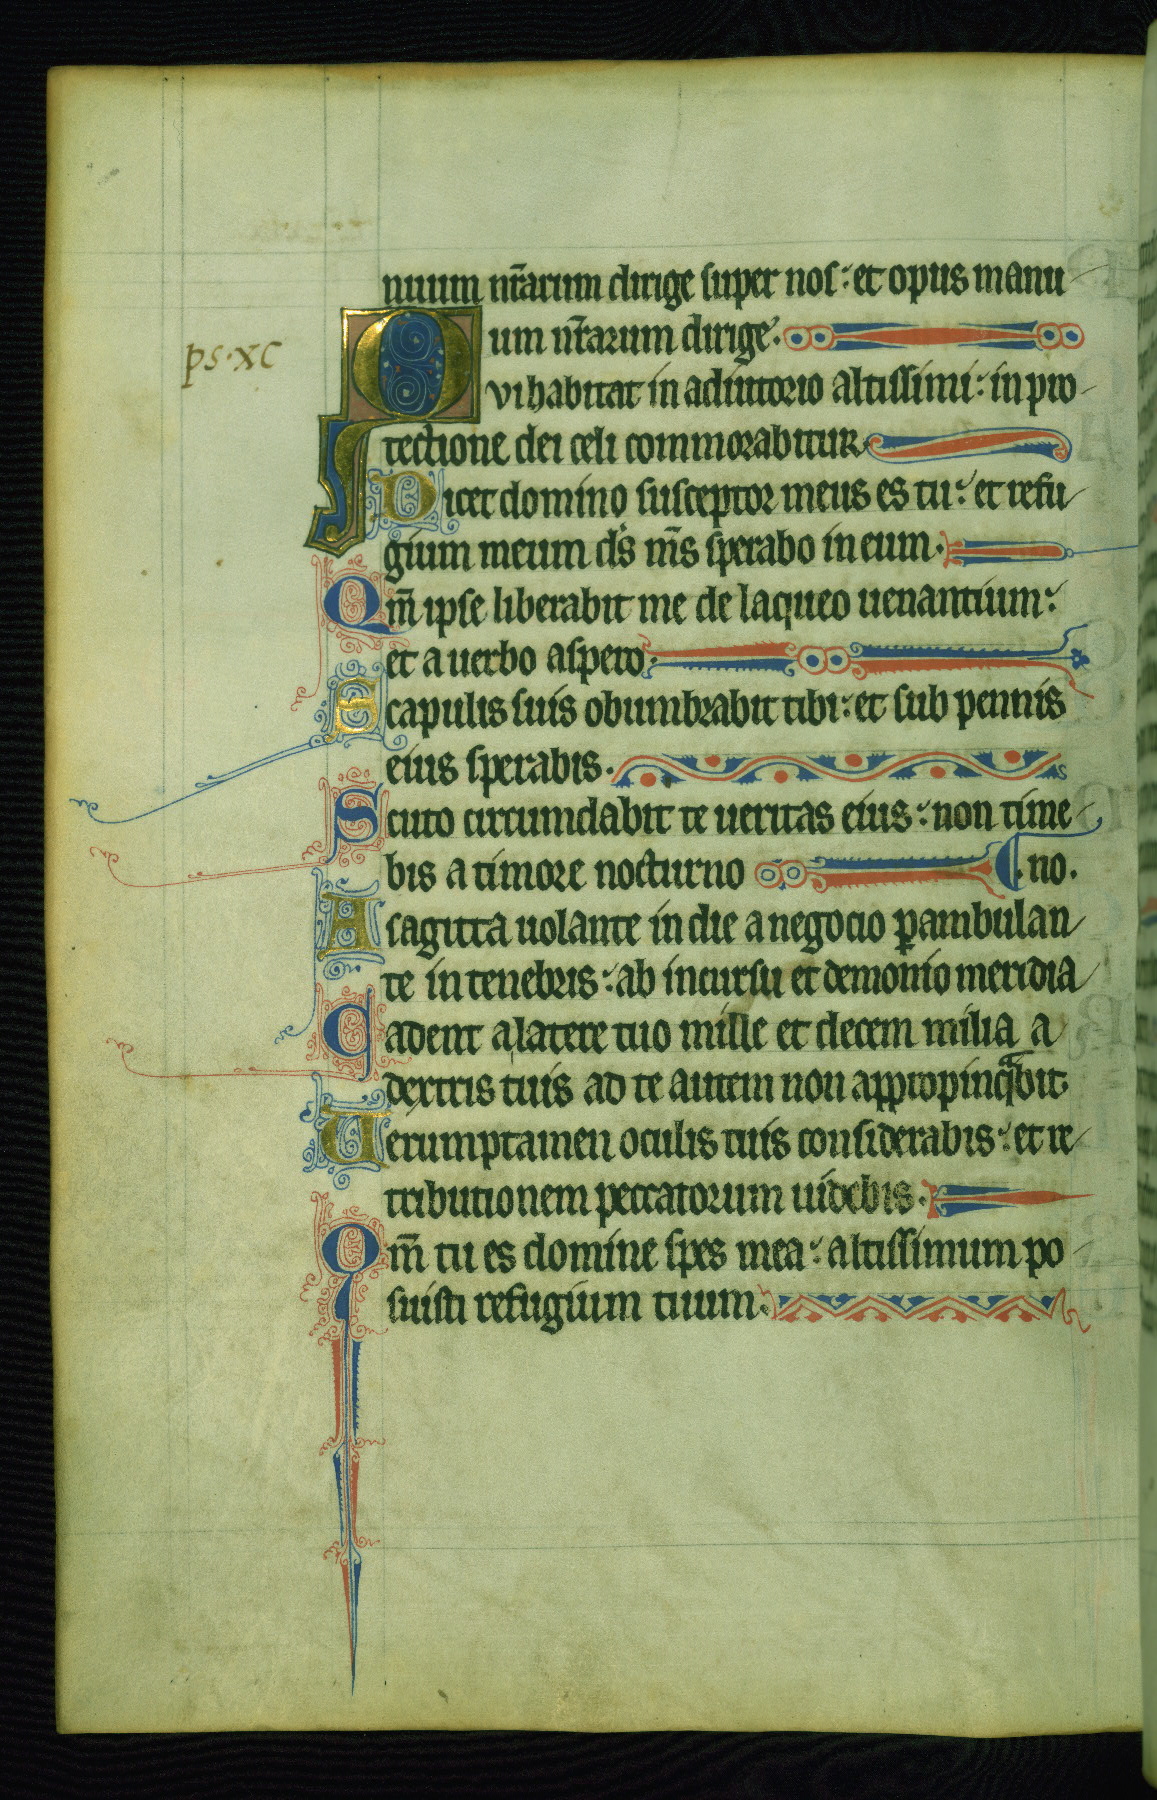 nuum nr̄arum dirige super nos: et opus manu
um nr̄arum dirige.
ps. XC
Qui habitat in adiutorio altissimi: in pro
tectione dei celi commorabitur
Dicet domino susceptor meus es tu: et refu
gium meum ds̄ ms̄ sperabo in eum.
Qm̄ ipse liberabit me de laqueo uenantium:
et a uerbo aspero.
Scapulis suis obumbrabit tibi: et sub pennis
eius sperabis.
Scuto circumdabit te ueritas eius: non time
bis a timore nocturno
no.
A sagitta uolante in die a negocio ꝑambulan
te in tenebris: ab incursu et demonio meridia
Cadent a latere tuo mille et decem milia a
dextris tuis ad te autem non appropinqᵃbit
Uerumptamen oculis tuis considerabis: et re
tributionem peccatorum uidebis.
Qm̄ tu es domine spes mea: altissimum po
suisti refugium tuum.